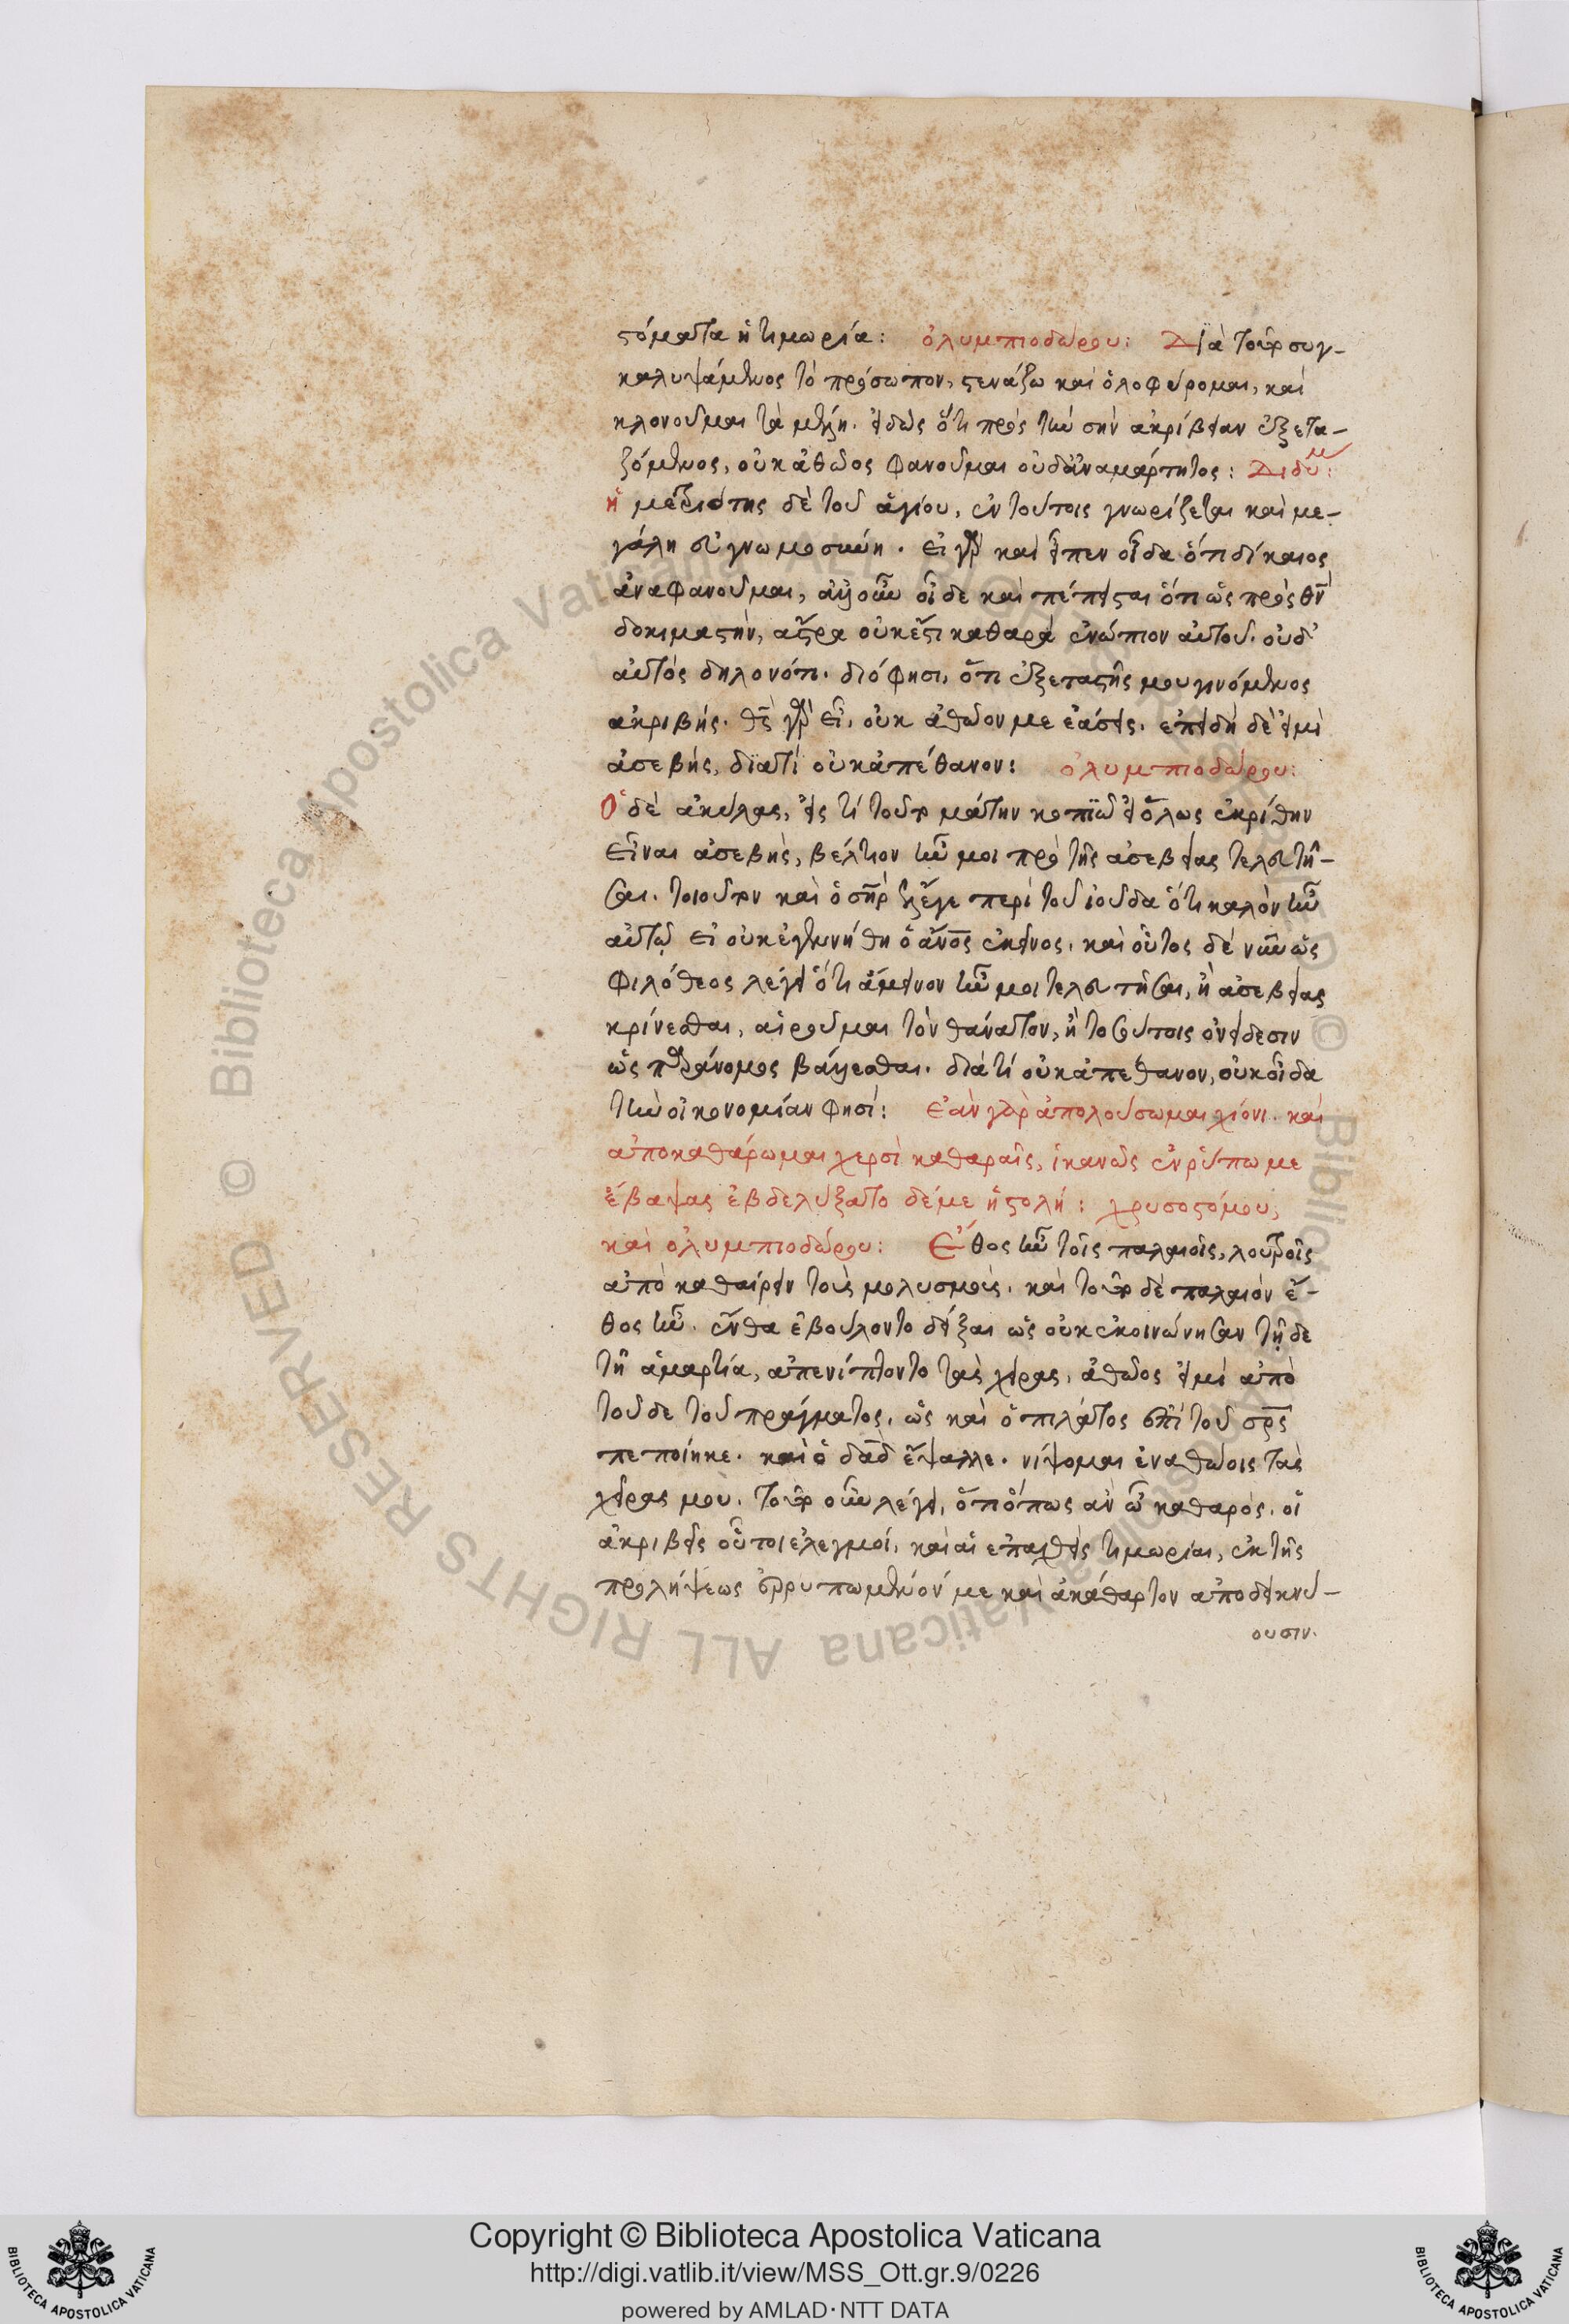 στόματα ἡ τιμωρία: ὀλυμπιοδώρου: Διὰ τοῦτο συγ-
καλυψάμενος τὸ πρόσωπον, στενάζω καὶ ὀλοφύρομαι, καὶ
κλονοῦμαι τὰ μέλη. εἰδὼς ὅτι πρὸς τὴν σὴν ἀκρίβειαν ἐξετα-
ζόμενος, οὐκ ἀθῶος φανοῦμαι οὐδ' ἀναμάρτητος: Διδύμ:
ἡ μετριότης δὲ τοῦ ἁγίου, ἐν τούτοις γνωρίζεται καὶ με-
γάλη εὐγνωμοσύνη. εἰ γὰρ καὶ εἶπεν οἶδα ὅτι δίκαιος
ἀναφανοῦμαι, ἀλλ' οὖν οἶδε καὶ πέπεισται ὅτι ὡς πρὸς θν̅
δοκιμαστὴν, ἄστρα οὐκ ἔστι καθαρὰ ἐνώπιον αὐτοῦ. οὐδ'
αὐτὸς δηλονότι. διό φησι, ὅτι ἐξεταστής μου γινόμενος
ἀκριβής. θς̅ γὰρ εἶ, οὐκ ἀθῶον με ἐάσεις. ἐπειδὴ δέ εἰμι
ἀσεβής, διατί οὐκ ἀπέθανον: ὀλυμπιοδώρου:
Ὁ δὲ ἀκύλας, εἰς τί τοῦτο μάτην κοπιῶ εἰ ὅλως ἐκρίθην
εἶναι ἀσεβὴς, βέλτιον ἦν μοι πρὸ τῆς ἀσεβείας τελευτῆ-
σαι. τοιοῦτον καὶ ὁ σηρ̅ ἔλεγε περὶ τοῦ ἰούδα ὅτι καλὸν ἦν
αὐτῷ εἰ οὐκ ἐγεννήθη ὁ ἄνος̅ ἐκεῖνος. καὶ οὗτος δὲ νῦν ὡς
φιλόθεος λέγει ὅτι ἄμεινον ἦν μοι τελευτῆσαι, ἢ ἀσεβείας
κρίνεσθαι, αἱροῦμαι τὸν θάνατον, ἢ τοσούτοις ὀνείδεσιν
ὡς παράνομος βάλλεσθαι. διὰ τί οὐκ ἀπέθανον, οὐκ οἶδα
τὴν οἰκονομίαν φησί: ἐὰν γὰρ ἀπολούσωμαι χιόνι. καὶ
ἀποκαθάρωμαι χερσὶ καθαραῖς, ἱκανῶς ἐν ῥύπῳ με
ἔβαψας ἐβδελύξατο δέ με ἡ στολή: χρυσοστόμου,
καὶ ὀλυμπιοδώρου: Ἔθος ἦν τοῖς παλαιοῖς, λουτροῖς
ἀποκαθαίρειν τοὺς μολυσμοὺς. καὶ τοῦτο δὲ παλαιὸν ἔ-
θος ἦν. ἔνθα ἐβούλοντο δεῖξαι ὡς οὐκ ἐκοινώνησαν τῇδε
τῇ ἁμαρτίᾳ, ἀπενίπτοντο τὰς χεῖρας, ἀθῶος εἰμὶ ἀπὸ
τοῦδε τοῦ πράγματος. ὡς καὶ ὁ πιλάτος ἐπὶ τοῦ σρς̅
πεποίηκε. καὶ ὁ δαδ̅ ἔψαλλε. νίψομαι ἐν ἀθώοις τὰς
χεῖρας μου. τοῦτο οὖν λέγει, ὅτι ὅπως ἂν ὦ καθαρός. οἱ
ἀκριβεῖς οὗτοι ἐλεγμοί, καὶ αἱ ἐπαχθεῖς τιμωρίαι, ἐκ τῆς
προλήψεως ἐρρυπωμένον με καὶ ἀκάθαρτον ἀποδεικνύ-
ουσιν.
Copyright © Biblioteca Apostolica Vaticana
http://digi.vatlib.it/view/MSS_Ott.gr.9/0226
powered by AMLAD·NTT DATA
BIBLIOTECA APOSTOLICA VATICANA
BIBLIOTECA APOSTOLICA VATICANA
© Biblioteca Apostolica Vaticana ALL RIGHTS RESERVED
© Biblioteca Apostolica Vaticana ALL RIGHTS RESERVED